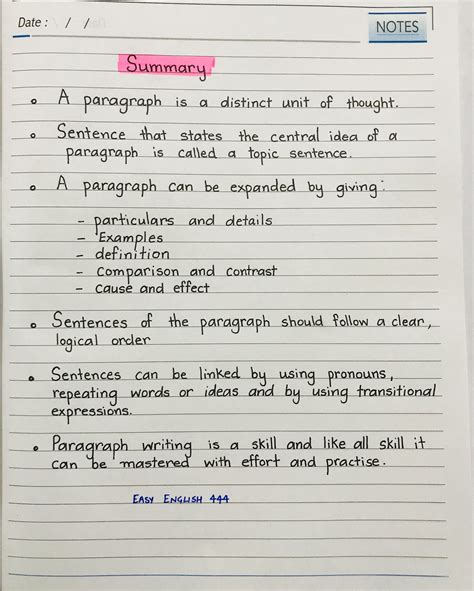 Date : / /
NOTES
Summary
A paragraph is a distinct unit of thought.
Sentence that states the central idea of a
paragraph is called a topic sentence.
A paragraph can be expanded by giving:
- particulars and details
- Examples
- definition
- comparison and contrast
- cause and effect
Sentences of the paragraph should follow a clear,
logical order
Sentences can be linked by using pronouns,
repeating words or ideas and by using transitional
expressions.
Paragraph writing is a skill and like all skill it
can be mastered with effort and practise.
EASY ENGLISH 444